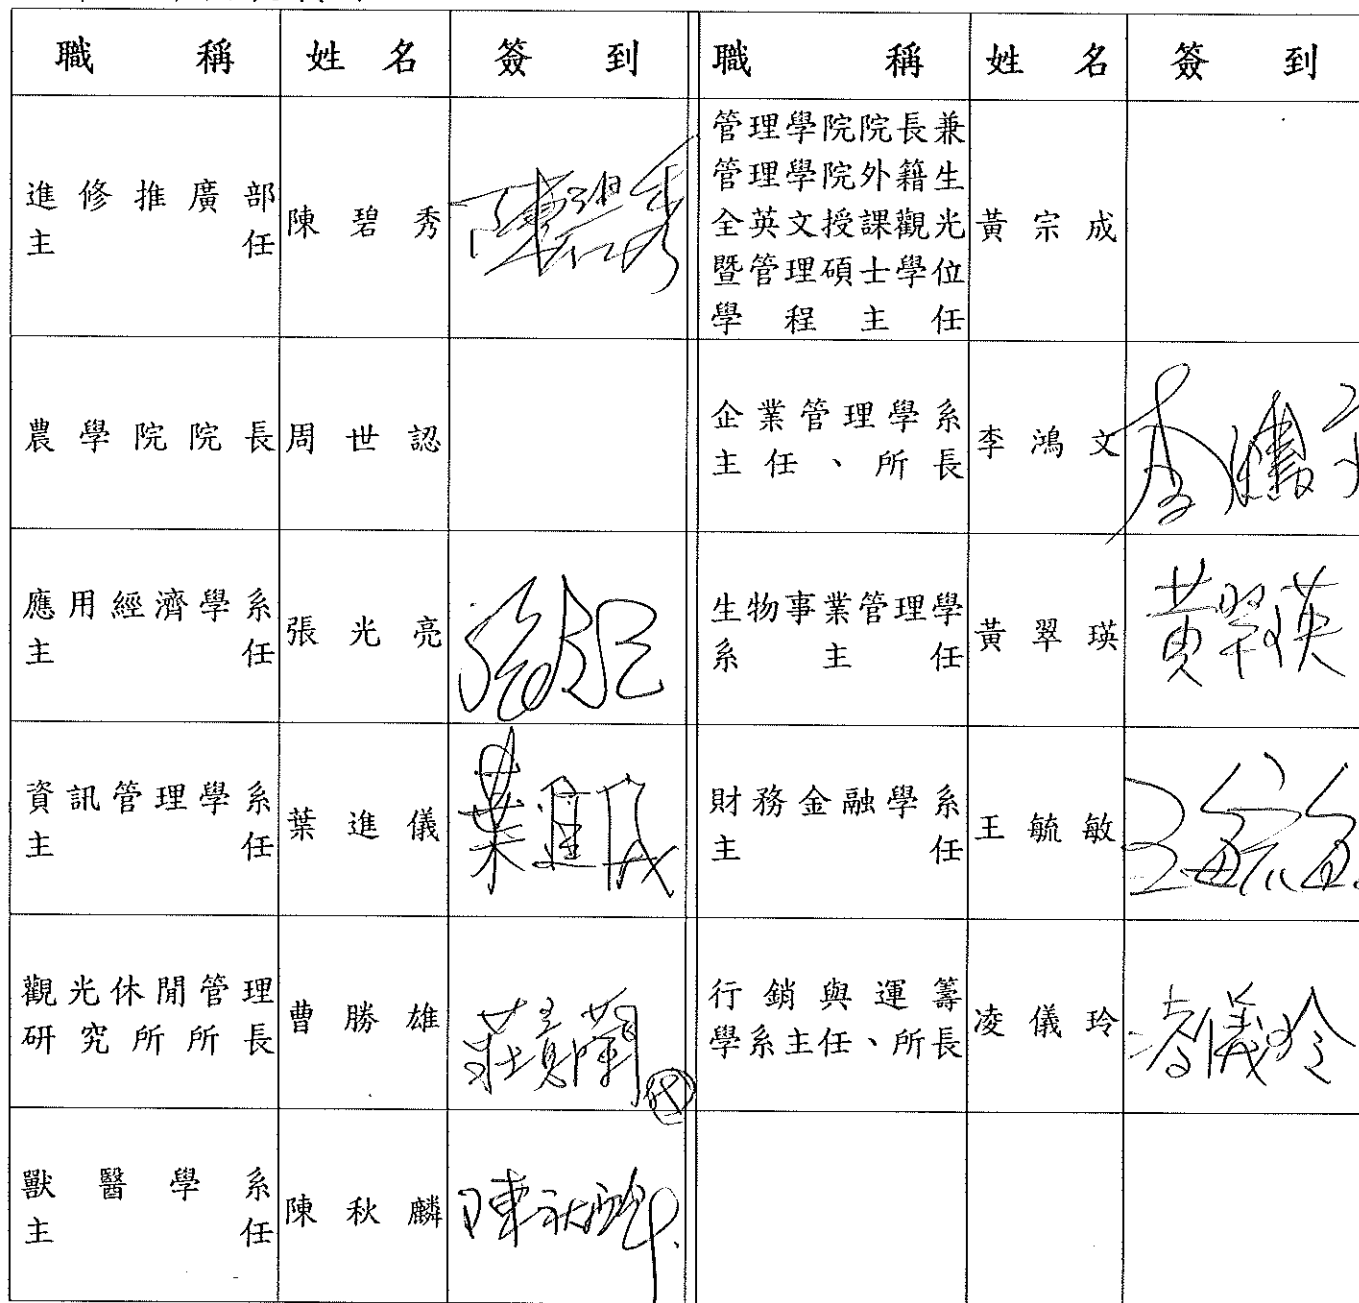 職稱 姓名 簽到 職稱 姓名 簽到
進修推廣部
主任
陳碧秀
陳碧秀
管理學院院長兼
管理學院外籍生
全英文授課觀光
暨管理碩士學位
學程主任
黃宗成
農學院院長
周世認
企業管理學系
主任、所長
李鴻文
李鴻文
應用經濟學系
主任
張光亮
張光亮
生物事業管理學
系主任
黃翠瑛
黃翠瑛
資訊管理學系
主任
葉進儀
葉進儀
財務金融學系
主任
王毓敏
王毓敏
觀光休閒管理
研究所所長
曹勝雄
代
行銷與運籌
學系主任、所長
凌儀玲
凌儀玲
獸醫學系
主任
陳秋麟
陳秋麟